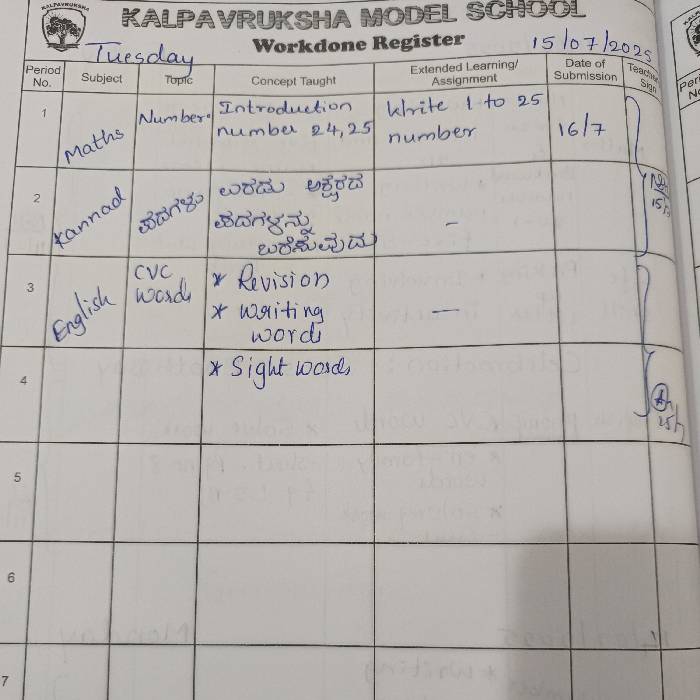 KALPAVRUKSHA
KALPAVRUKSHA MODEL SCHOOL
Workdone Register
Tuesday
15/07/2025
Period No.
Subject
Topic
Concept Taught
Extended Learning/ Assignment
Date of Submission
Teacher Sign
1
Maths
Number
Introduction
number 24,25
Write 1 to 25
number
16/7
2
Kannad
ಪದಗಳು
ಎರಡು ಅಕ್ಷರದ
ಪದಗಳನ್ನು
ಬರೆಸುವುದು
-
15/7
3
English
CVC
words
* Revision
* writing
words
-
4
* Sight words
15/7
5
6
7